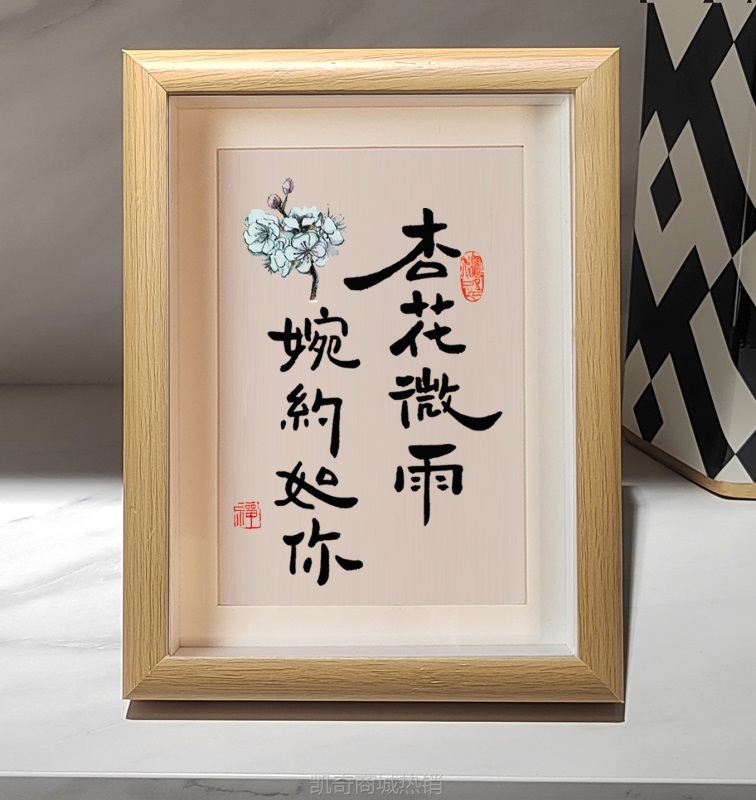 杏花微雨
婉約如你
禪
凯奇商城热销